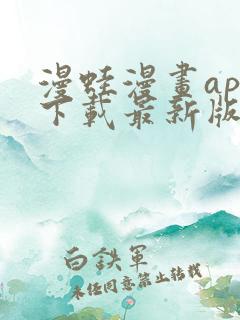 漫蛙漫畫ap
下載最新版
白鉄軍
未经同意禁止转载